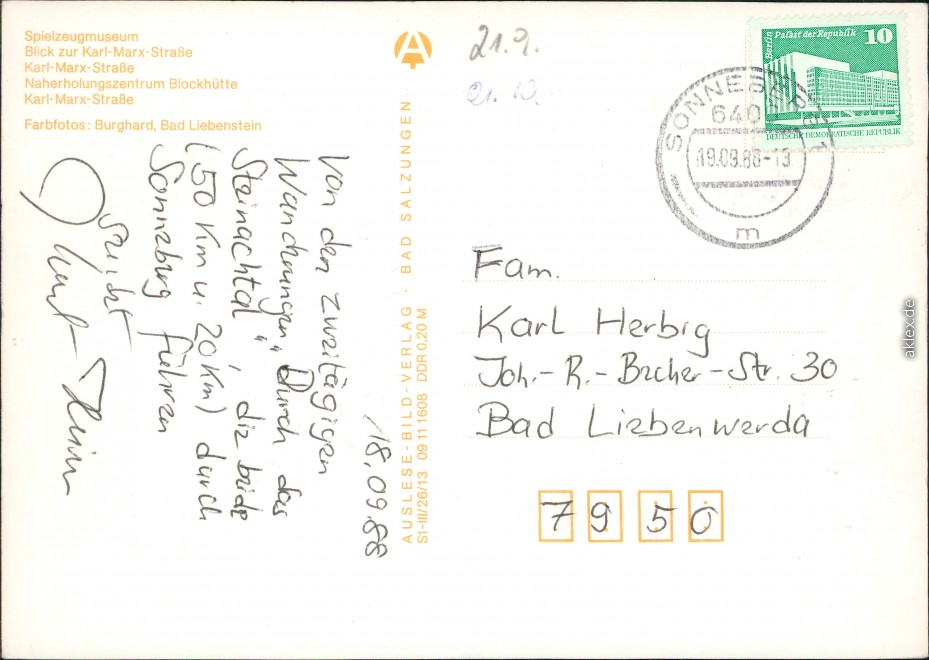 Spielzeugmuseum
Blick zur Karl-Marx-Straße
Karl-Marx-Straße
Naherholungszentrum Blockhütte
Karl-Marx-Straße
Farbfotos: Burghard, Bad Liebenstein
18.09.88
Von den zweitägigen
Wanderungen „Durch das
Steinachtal", die beide
(50 Km u. 20 Km) durch
Sonneberg führen
AUSLESE-BILD-VERLAG · BAD SALZUNGEN
S1-III/26/13 09 11 1608 DDR 0,20 M
21.9.
21. 10.
Berlin Palast der Republik 10
DEUTSCHE DEMOKRATISCHE REPUBLIK
SONNEBERG 1
640
19.09.88-13
m
Fam.
Karl Herbig
Joh.-R.-Becher-Str. 30
Bad Liebenwerda
7950
aklex.de